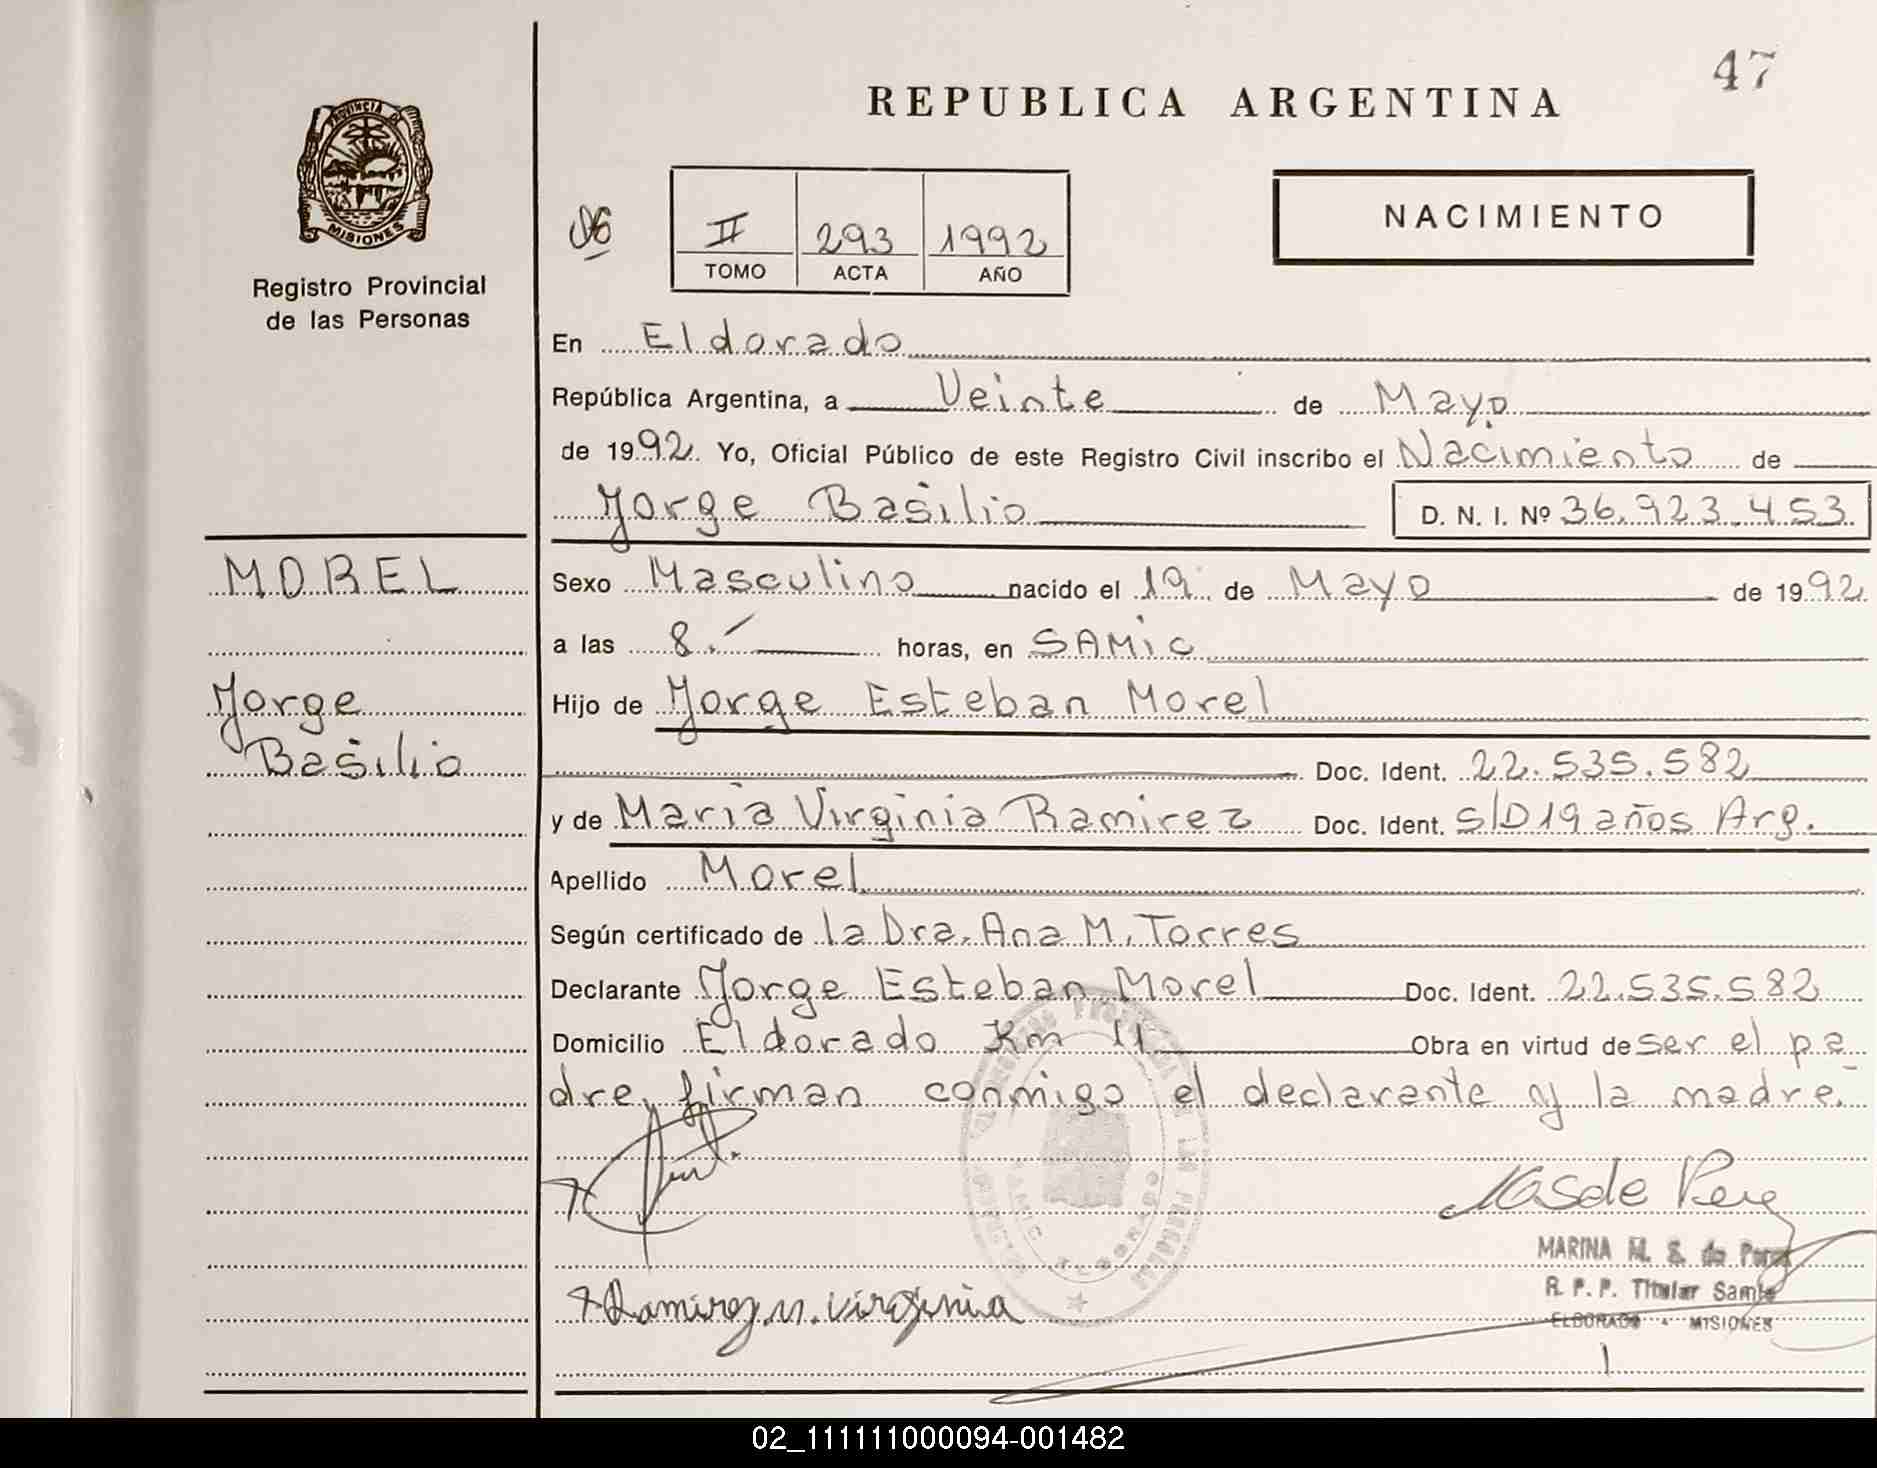 47
REPUBLICA ARGENTINA
PROVINCIA DE
MISIONES
Registro Provincial
de las Personas
06
II 293 1992
TOMO ACTA AÑO
NACIMIENTO
En Eldorado
República Argentina, a Veinte de Mayo
de 1992. Yo, Oficial Público de este Registro Civil inscribo el Nacimiento de
Jorge Basilio D. N. I. Nº 36.923.453
MOREL
Sexo Masculino nacido el 19 de Mayo de 1992
a las 8.- horas, en SAMIC
Jorge
Hijo de Jorge Esteban Morel
Basilio
Doc. Ident. 22.535.582
y de Maria Virginia Ramirez Doc. Ident. S/D 19 años Arg.
Apellido Morel
Según certificado de la Dra. Ana M. Torres
Declarante Jorge Esteban Morel Doc. Ident. 22.535.582
Domicilio Eldorado Km 11 Obra en virtud de ser el pa
dre, firman conmigo el declarante y la madre.
MARINA M. S. de Perez
R. P. P. Titular Samic
ELDORADO - MISIONES
Ramirez M. Virginia
02_111111000094-001482